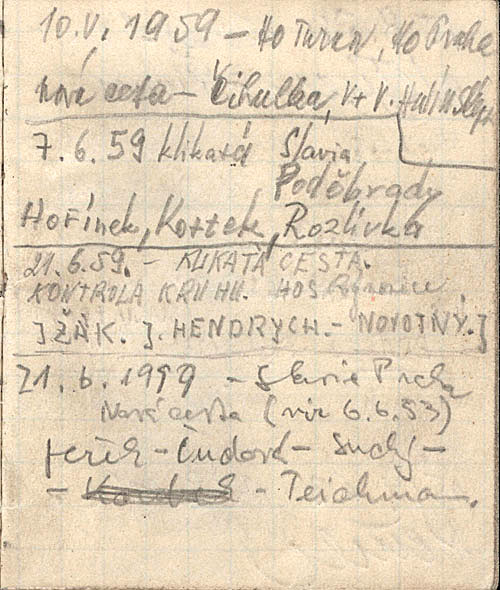 10.V. 1959 – HO Turnov, HO Praha
nová cesta – Cihulka, V+V.
7.6.59 klikatá Slavia
Poděbrady
Hořínek, Kostek, Rozlívka
21.6.59. – KLIKATÁ CESTA.
KONTROLA KRUHU. HOS
J ŽÁK. J. HENDRYCH. – NOVOTNÝ. J
21. 6. 1959 – Slavie Praha
Nová cesta (viz 6.6.53)
– Čudová – Suchý –
– – Teichman.